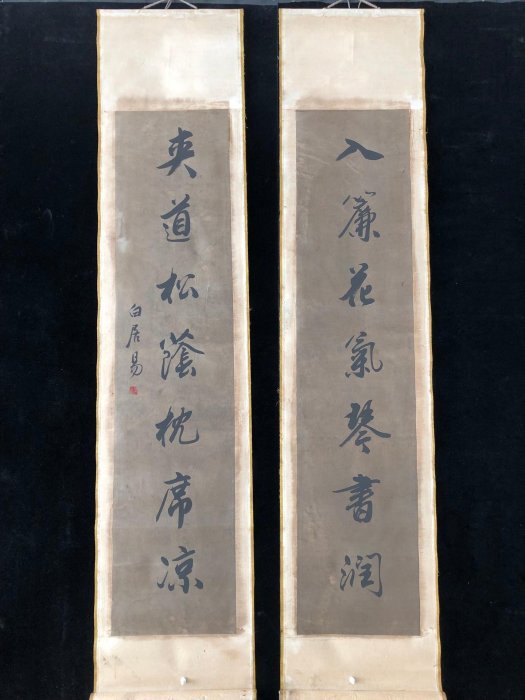 入簾花氣琴書潤
夾道松蔭枕席凉
白居易